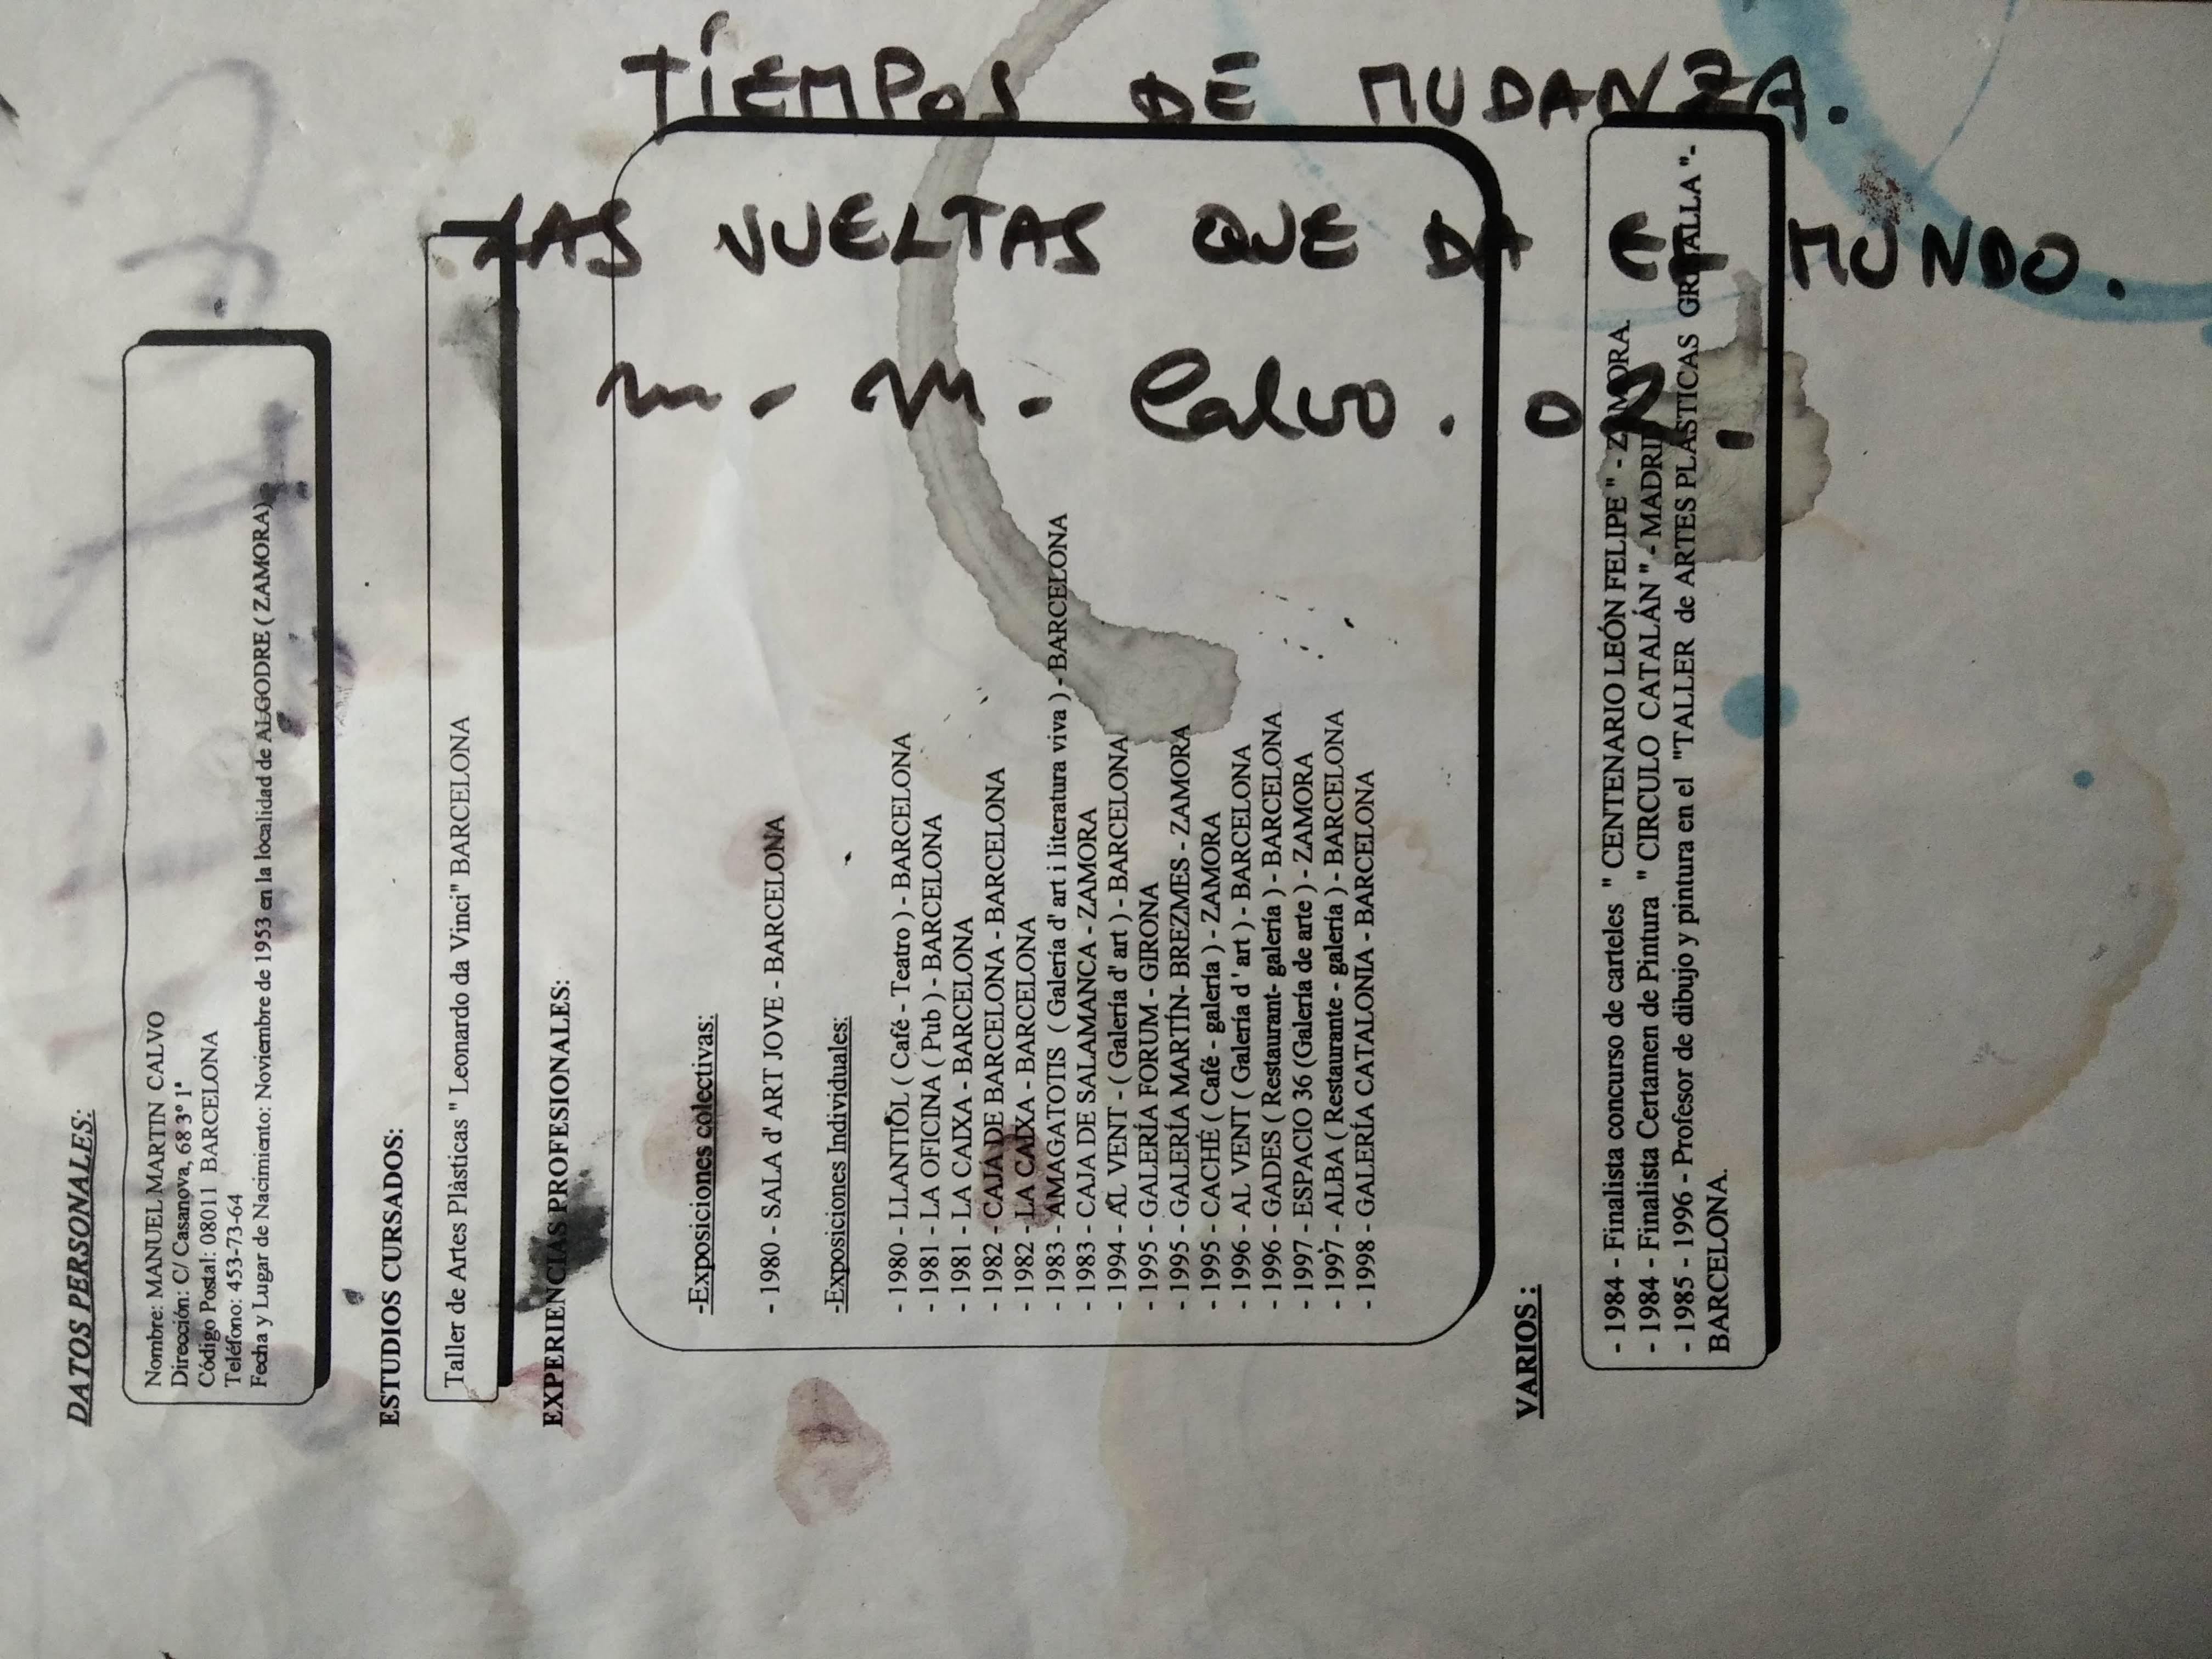 TIEMPOS DE MUDANZA.
LAS VUELTAS QUE DA EL MUNDO.
M. M. Calvo.
DATOS PERSONALES:
Nombre: MANUEL MARTIN CALVO
Dirección: C/ Casanova, 68 3º 1ª
Código Postal: 08011 BARCELONA
Teléfono: 453-73-64
Fecha y Lugar de Nacimiento: Noviembre de 1953 en la localidad de ALGODRE ( ZAMORA)
ESTUDIOS CURSADOS:
Taller de Artes Plàsticas " Leonardo da Vinci" BARCELONA
EXPERIENCIAS PROFESIONALES:
-Exposiciones colectivas:
- 1980 - SALA d' ART JOVE - BARCELONA
-Exposiciones Individuales:
- 1980 - LLANTIOL ( Café - Teatro ) - BARCELONA
- 1981 - LA OFICINA ( Pub ) - BARCELONA
- 1981 - LA CAIXA - BARCELONA
- 1982 - CAJA DE BARCELONA - BARCELONA
- 1982 - LA CAIXA - BARCELONA
- 1983 - AMAGATOTIS ( Galería d' art i literatura viva ) - BARCELONA
- 1983 - CAJA DE SALAMANCA - ZAMORA
- 1994 - AL VENT - ( Galería d' art ) - BARCELONA
- 1995 - GALERÍA FORUM - GIRONA
- 1995 - GALERÍA MARTÍN- BREZMES - ZAMORA
- 1995 - CACHÉ ( Café - galería ) - ZAMORA
- 1996 - AL VENT ( Galería d ' art ) - BARCELONA
- 1996 - GADES ( Restaurant- galería ) - BARCELONA
- 1997 - ESPACIO 36 (Galería de arte ) - ZAMORA
- 1997 - ALBA ( Restaurante - galería ) - BARCELONA
- 1998 - GALERÍA CATALONIA - BARCELONA
VARIOS :
- 1984 - Finalista concurso de carteles " CENTENARIO LEÓN FELIPE " - ZAMORA.
- 1984 - Finalista Certamen de Pintura " CIRCULO CATALÁN " - MADRID
- 1985 - 1996 - Profesor de dibujo y pintura en el "TALLER de ARTES PLÁSTICAS GRALLA "-
BARCELONA.